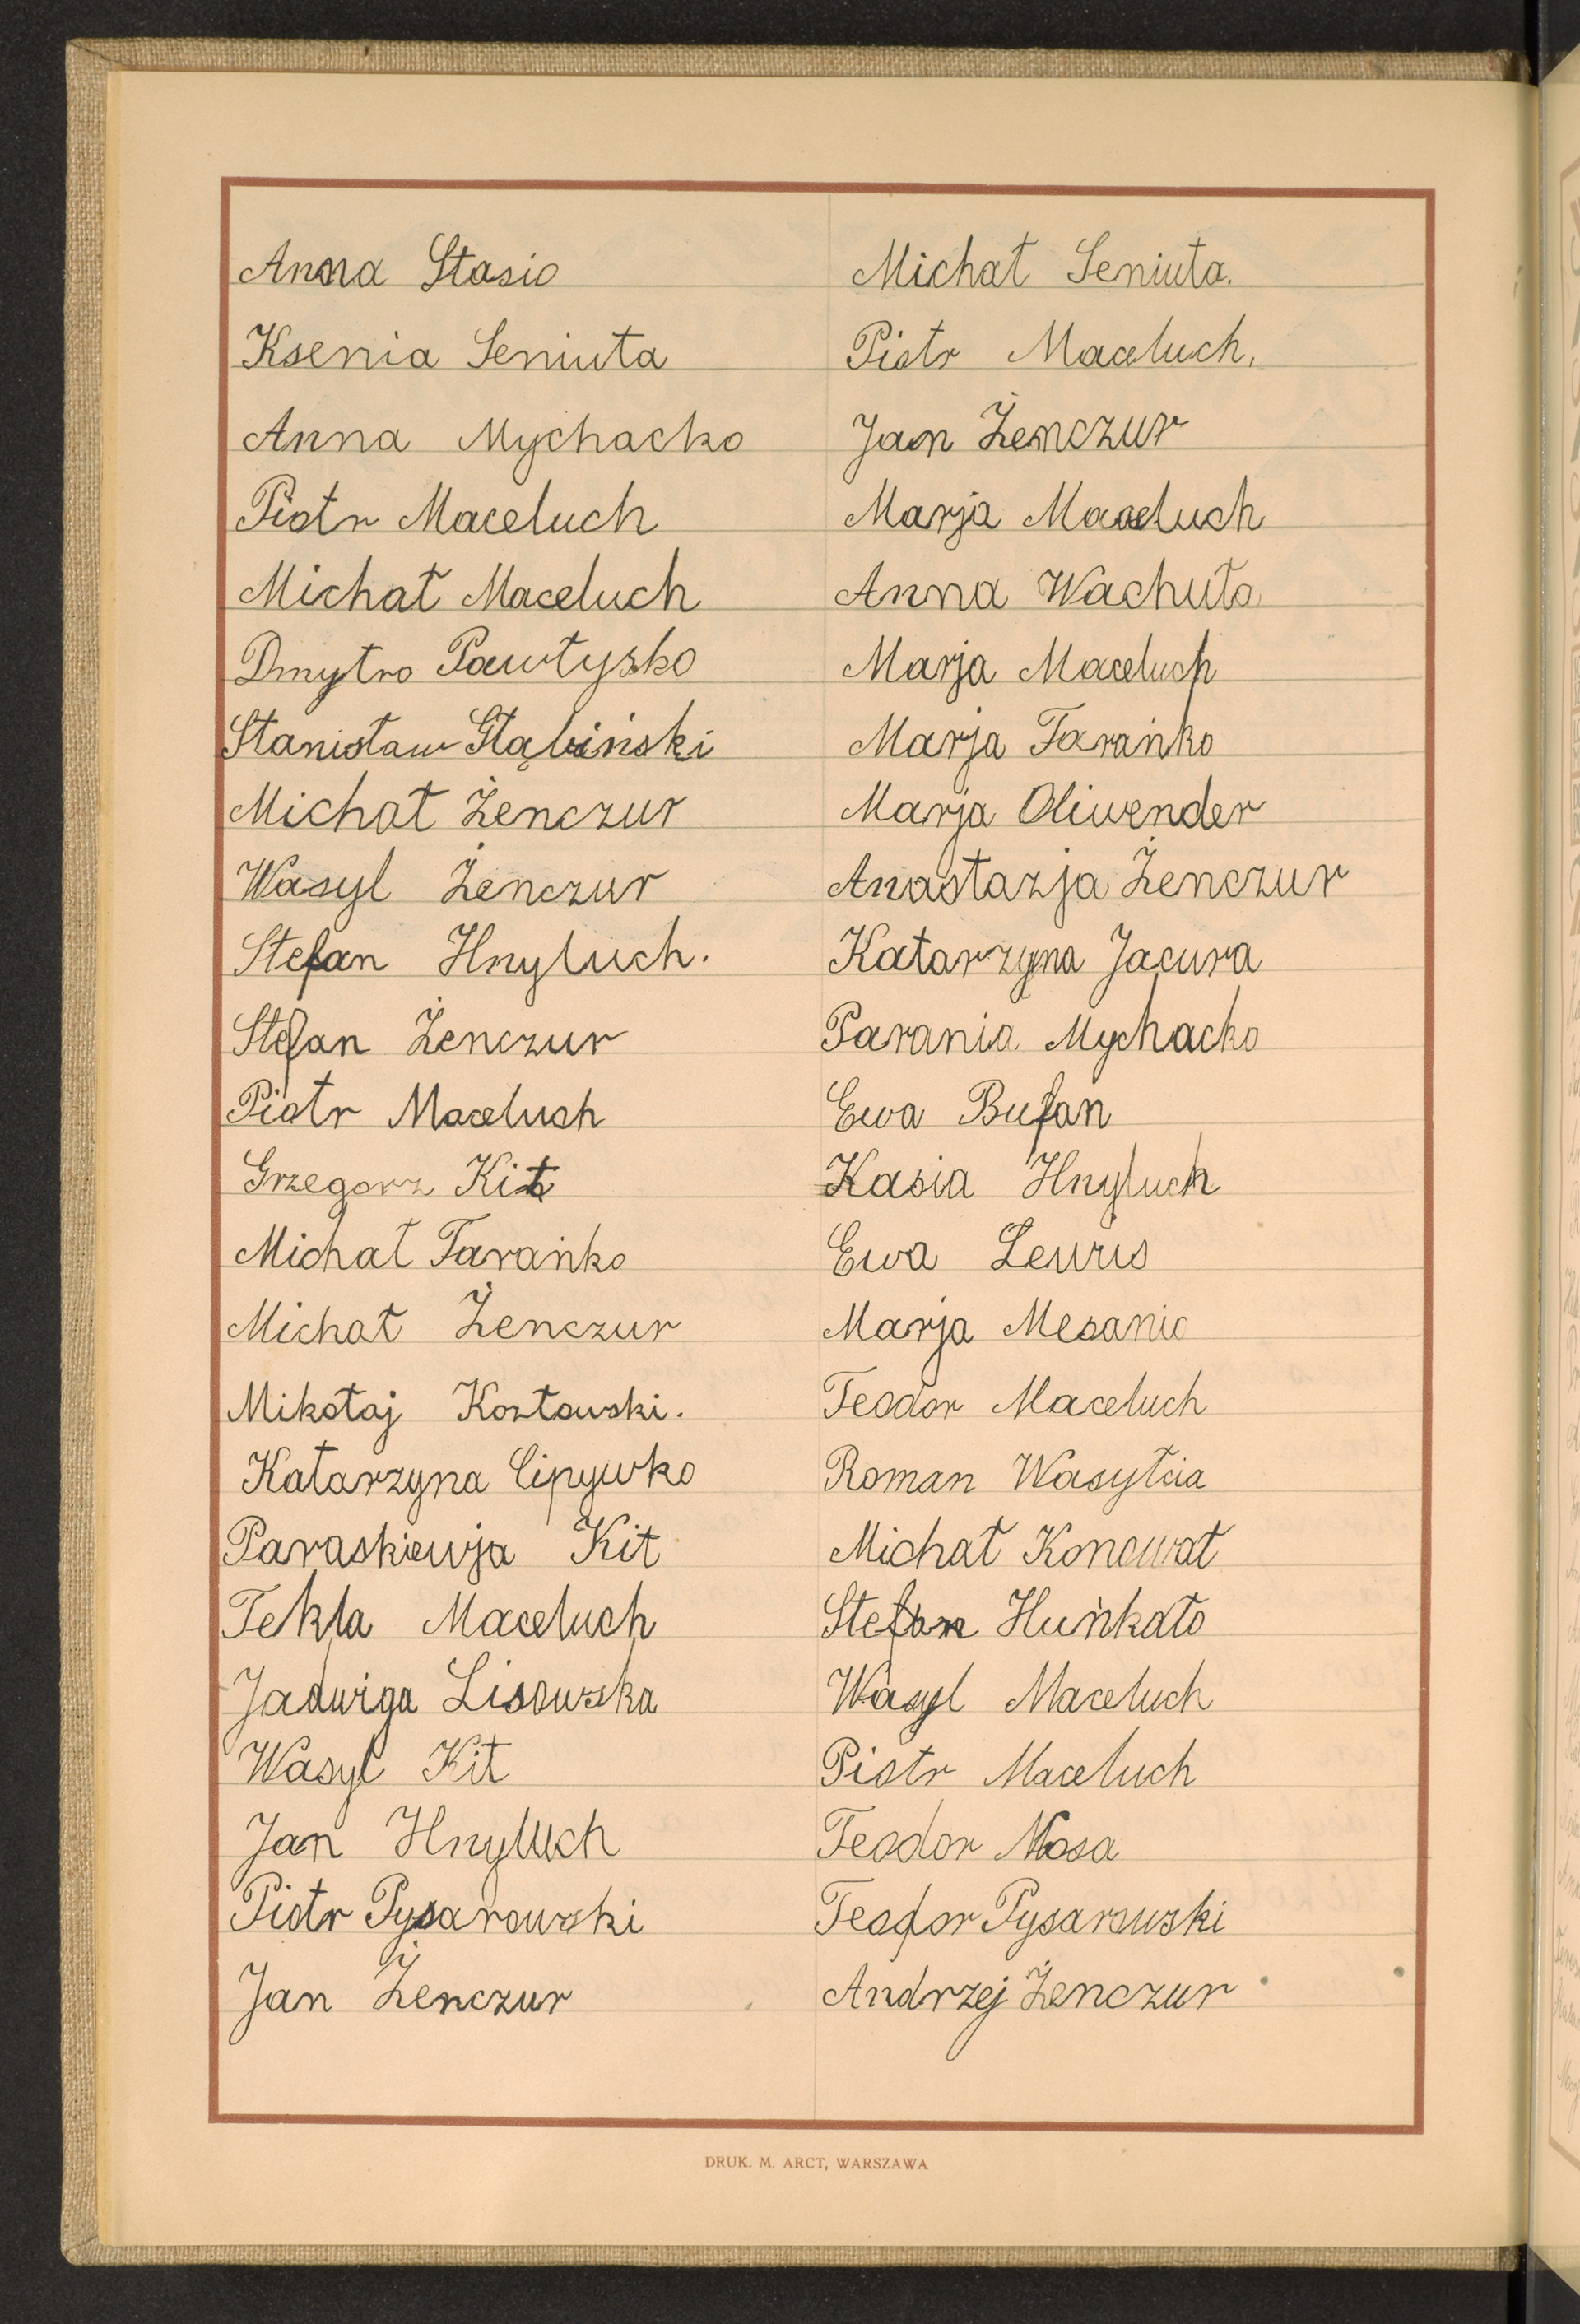 Anna Stasio
Ksenia Seniuta
Anna Mychacko
Piotr Maceluch
Michał Maceluch
Dmytro Pawłyszko
Stanisław Głąbiński
Michał Żenczur
Wasyl Żenczur
Stefan Hnyluch.
Stefan Żenczur
Piotr Maceluch
Grzegorz Kit
Michał Tarańko
Michał Żenczur
Mikołaj Kozłowski.
Katarzyna Cipywko
Paraskiewja Kit
Tekla Maceluch
Jadwiga Lisowska
Wasyl Kit
Jan Hnyluch
Piotr Pysarowski
Jan Żenczur
Michał Seniuta.
Piotr Maceluch.
Jan Żenczur
Marja Maceluch
Anna Wachuła
Marja Maceluch
Marja Tarańko
Marja Oliwender
Anastazja Żenczur
Katarzyna Jacura
Parania Mychacko
Ewa Bufan
Kasia Hnyluch
Ewa
Marja Mesanio
Teodor Maceluch
Roman Wasyłcia
Michał Konował
Stefan Huńkało
Wasyl Maceluch
Piotr Maceluch
Teodor Mosa
Teodor Pysarowski
Andrzej Żenczur
DRUK. M. ARCT, WARSZAWA